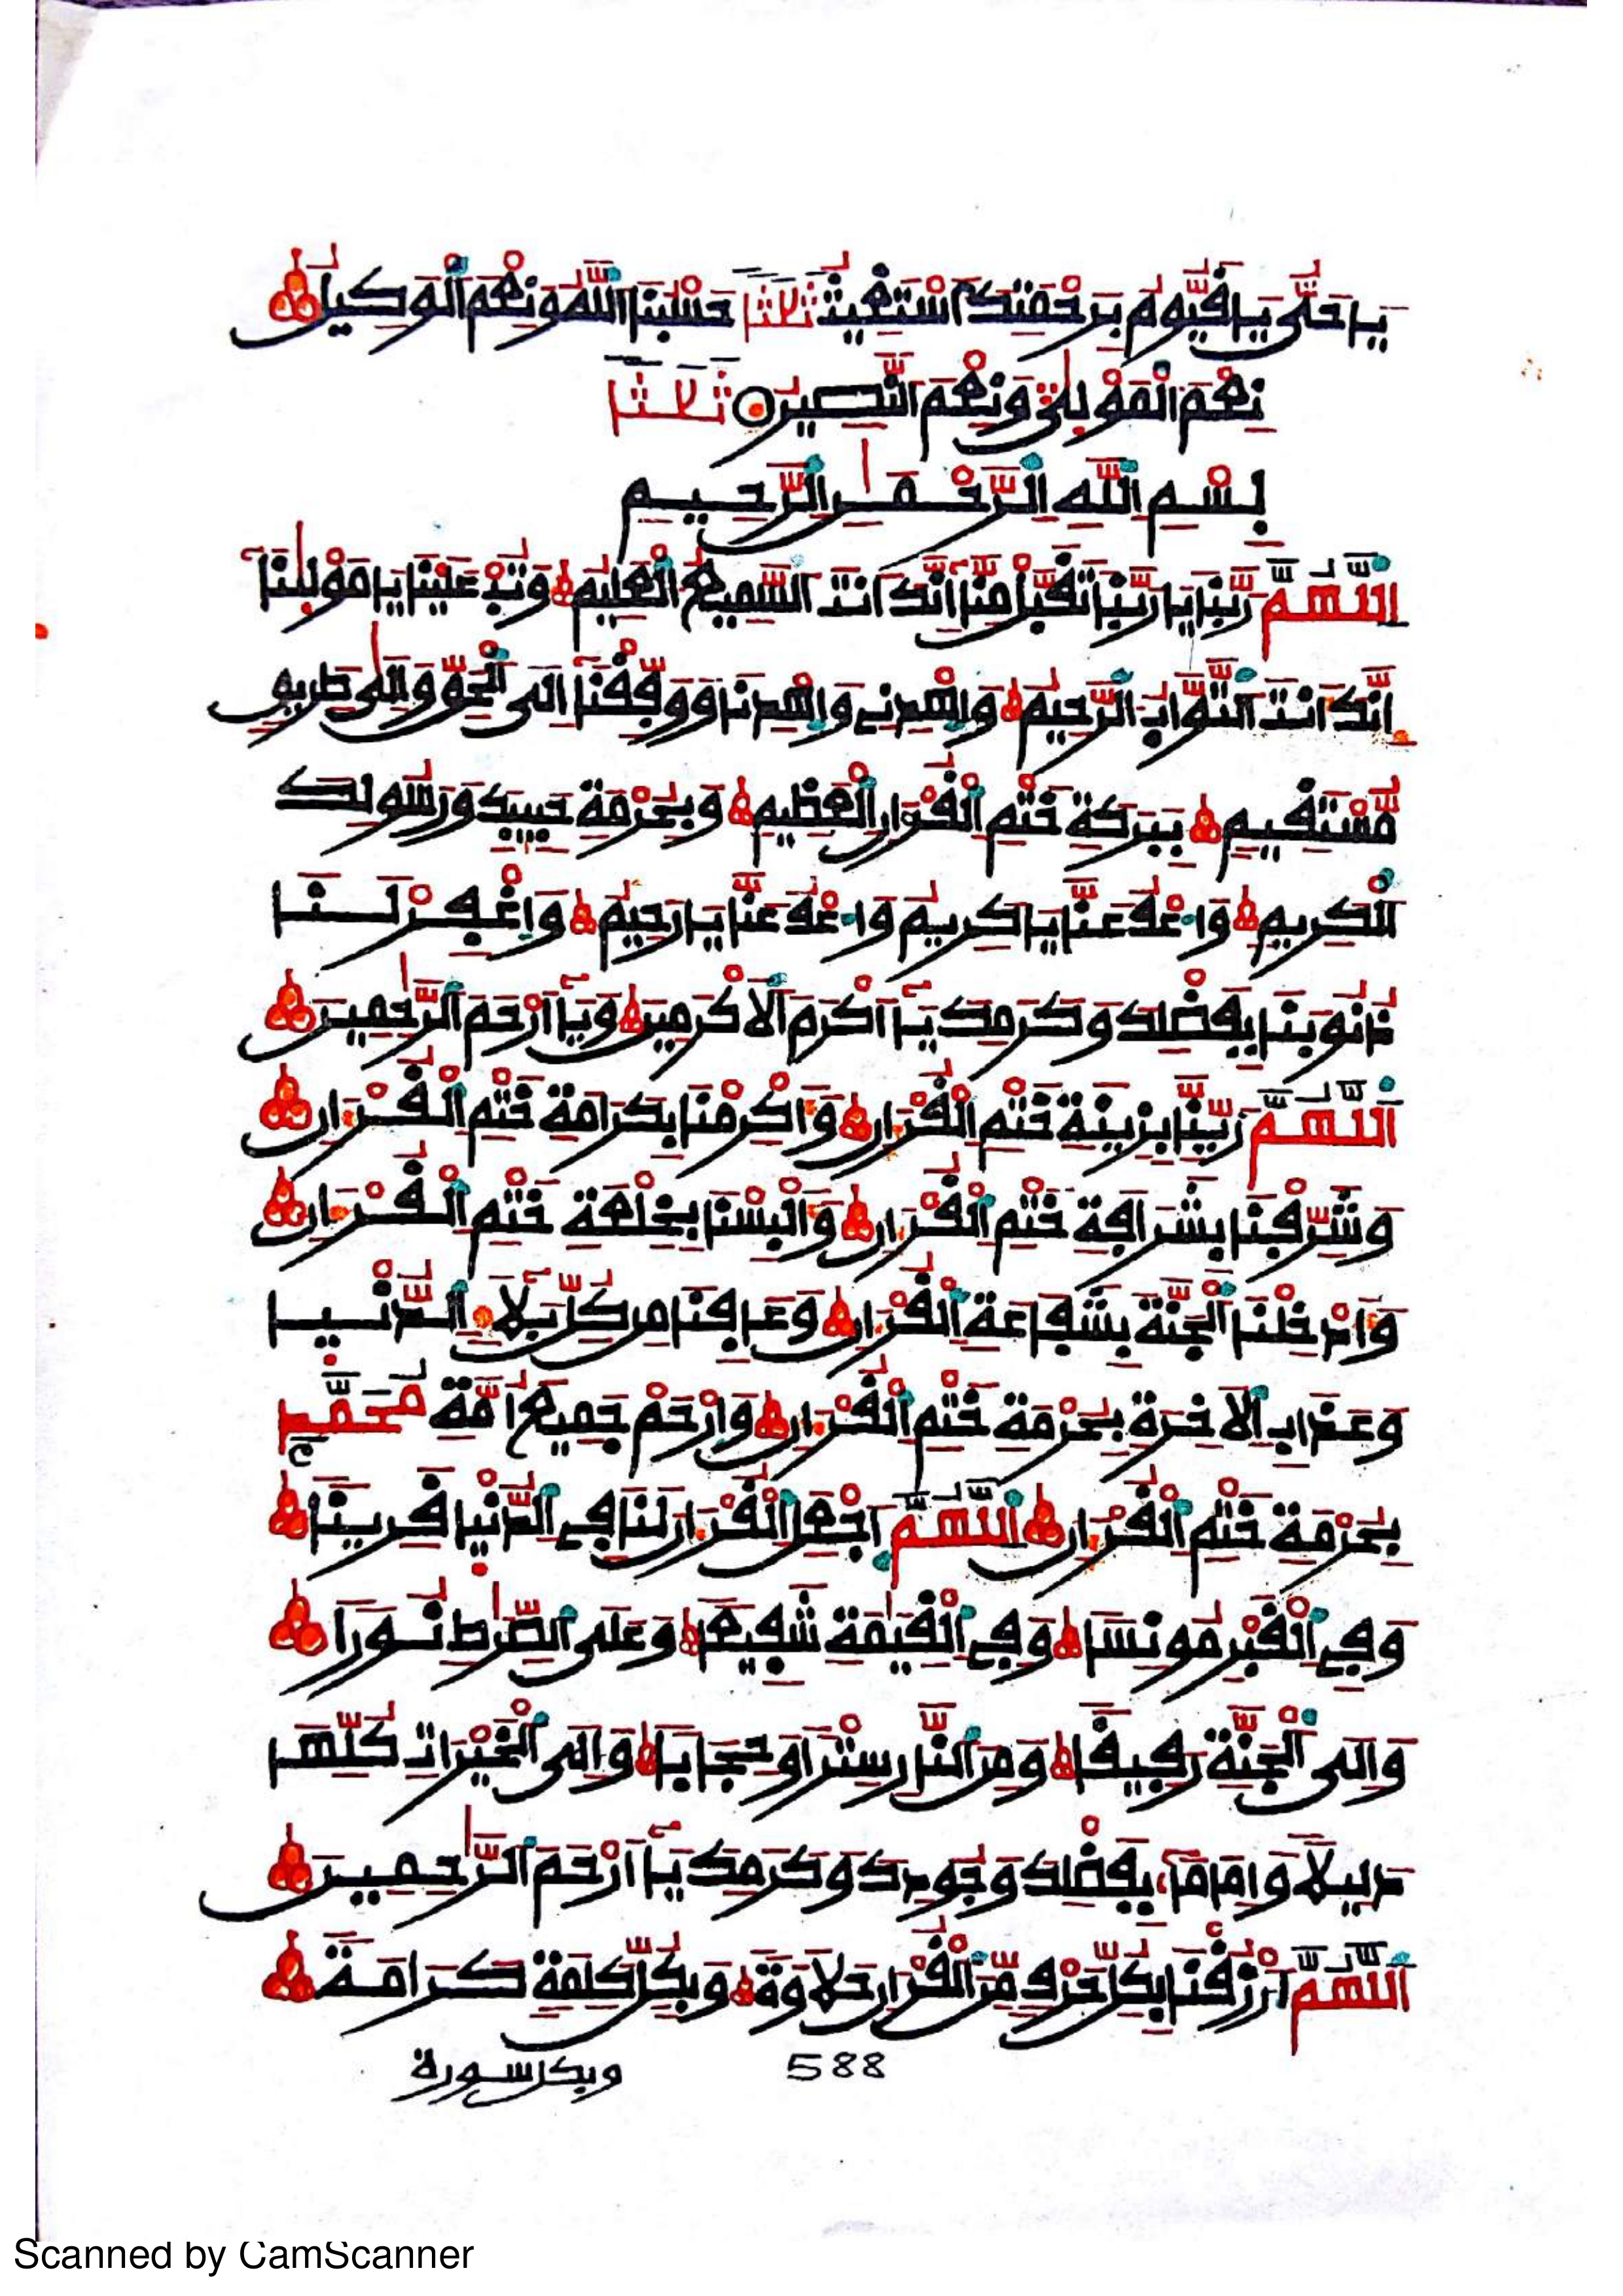 يَا حَىُّ يَا قَيُّومُ بِرَحْمَتِكَ أَسْتَغِيثُ ثَلَٰثًا حَسْبُنَا اللَّهُ وَنِعْمَ الْوَكِيلُ
نِعْمَ الْمَوْلَىٰ وَنِعْمَ النَّصِيرُ ثَلَٰثًا
بِسْمِ اللَّهِ الرَّحْمَٰنِ الرَّحِيمِ
اللَّهُمَّ رَبَّنَا يَا رَبَّنَا تَقَبَّلْ مِنَّا إِنَّكَ أَنتَ السَّمِيعُ الْعَلِيمُ وَتُبْ عَلَيْنَا يَا مَوْلَىٰنَا
إِنَّكَ أَنتَ التَّوَّابُ الرَّحِيمُ وَاهْدِنِي وَاهْدِنَا وَوَفِّقْنَا إِلَى الْحَقِّ وَإِلَىٰ طَرِيقٍ
مُّسْتَقِيمٍ بِبَرَكَةِ خَتْمِ الْقُرْءَانِ الْعَظِيمِ وَبِحُرْمَةِ حَبِيبِكَ وَرَسُولِكَ
الْكَرِيمِ وَاعْفُ عَنَّا يَا كَرِيمُ وَاعْفُ عَنَّا يَا رَحِيمُ وَاغْفِرْ لَنَا
ذُنُوبَنَا بِفَضْلِكَ وَكَرَمِكَ يَا أَكْرَمَ الْأَكْرَمِينَ وَيَا أَرْحَمَ الرَّٰحِمِينَ
اللَّهُمَّ زَيِّنَّا بِزِينَةِ خَتْمِ الْقُرْءَانِ وَأَكْرِمْنَا بِكَرَامَةِ خَتْمِ الْقُرْءَانِ
وَشَرِّفْنَا بِشَرَافَةِ خَتْمِ الْقُرْءَانِ وَأَلْبِسْنَا بِخِلْعَةِ خَتْمِ الْقُرْءَانِ
وَأَدْخِلْنَا الْجَنَّةَ بِشَفَاعَةِ الْقُرْءَانِ وَعَافِنَا مِن كُلِّ بَلَاءِ الدُّنْيَا
وَعَذَابِ الْآخِرَةِ بِحُرْمَةِ خَتْمِ الْقُرْءَانِ وَارْحَمْ جَمِيعَ أُمَّةِ مُحَمَّدٍ
بِحُرْمَةِ خَتْمِ الْقُرْءَانِ اللَّهُمَّ اجْعَلِ الْقُرْءَانَ لَنَا فِي الدُّنْيَا قَرِينًا
وَفِي الْقَبْرِ مُونِسًا وَفِي الْقِيَٰمَةِ شَفِيعًا وَعَلَى الصِّرَٰطِ نُورًا
وَإِلَى الْجَنَّةِ رَفِيقًا وَمِنَ النَّارِ سِتْرًا وَحِجَابًا وَإِلَى الْخَيْرَاتِ كُلِّهَا
دَلِيلًا وَإِمَامًا بِفَضْلِكَ وَجُودِكَ وَكَرَمِكَ يَا أَرْحَمَ الرَّٰحِمِينَ
اللَّهُمَّ ارْزُقْنَا بِكُلِّ حَرْفٍ مِّنَ الْقُرْءَانِ حَلَاوَةً وَبِكُلِّ كَلِمَةٍ كَرَامَةً
588 وبكل سورة
Scanned by CamScanner